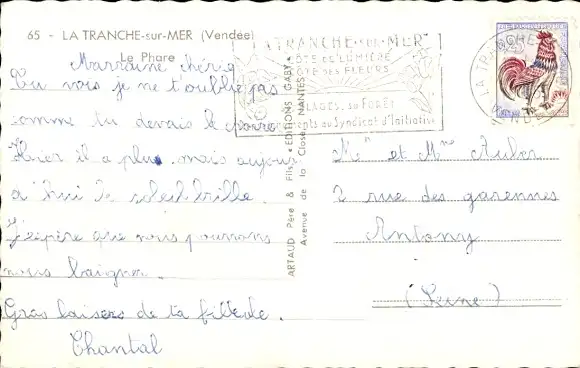 65 - LA TRANCHE-sur-MER (Vendée)
Le Phare
Marraine chérie
Tu vois je ne t'oublie pas
comme tu devais le croire
Hier il a plu. mais aujour
d'hui le soleil brille.
J'espère que nous pourrons
nous baigner.
Gros baisers de ta filleule.
Chantal
ARTAUD Père & Fils, EDITIONS GABY
Avenue de la Close, NANTES
LA TRANCHE-SUR-MER
CÔTE DE LUMIÈRE
DES FLEURS
PLAGES, sa FORÊT
au Syndicat d'Initiative
LA TRANCHE
Mr et Mme Auber
2 rue des garennes
Antony
(Seine)